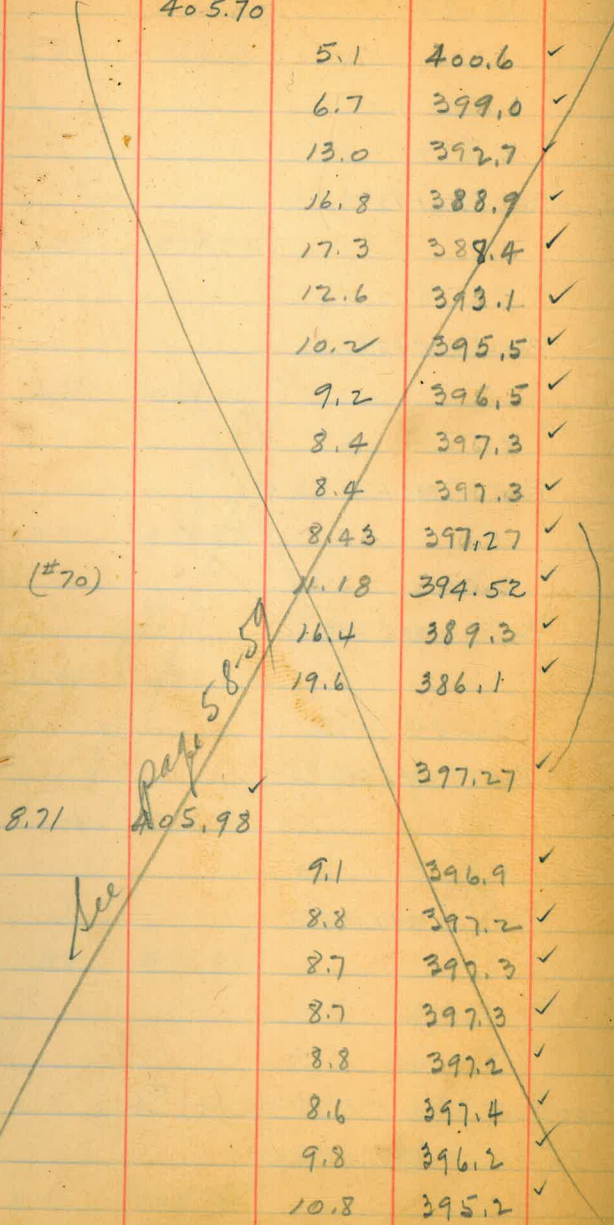 405.70
5.1 400.6 ✓
6.7 399.0 ✓
13.0 392.7 ✓
16.8 388.9 ✓
17.3 388.4 ✓
12.6 393.1 ✓
10.2 395.5 ✓
9.2 396.5 ✓
8.4 397.3 ✓
8.4 397.3 ✓
8.43 397.27 ✓
(#70) 11.18 394.52 ✓
16.4 389.3 ✓
19.6 386.1 ✓
397.27 ✓
8.71 405.98 ✓
9.1 396.9 ✓
8.8 397.2 ✓
8.7 397.3 ✓
8.7 397.3 ✓
8.8 397.2 ✓
8.6 397.4 ✓
9.8 396.2 ✓
10.8 395.2 ✓
See page 58-59